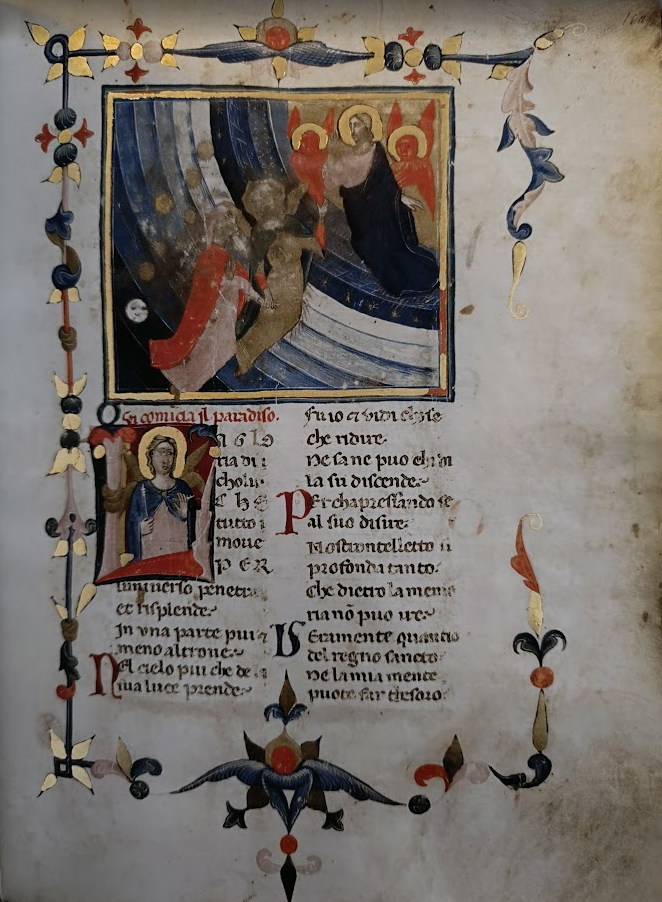 Qui comīcia il paradiso.
A G L O
ria di
cholui
C H E
tutto
move
P E R
luniverso penetra
et risplende.
In una parte piu
meno altrove.
Nel cielo piui che de
sua luce prende.
Fu io et vidi chose
che ridire.
Ne sa ne puo chi di
la su discende.
Per chapressando se
al suo disire.
Nostrontelletto si
profonda tanto.
Che dietro la memo
ria nō puo ire.
Veramente quantio
del regno sancto.
Ne la mia mente
puote far thesoro.